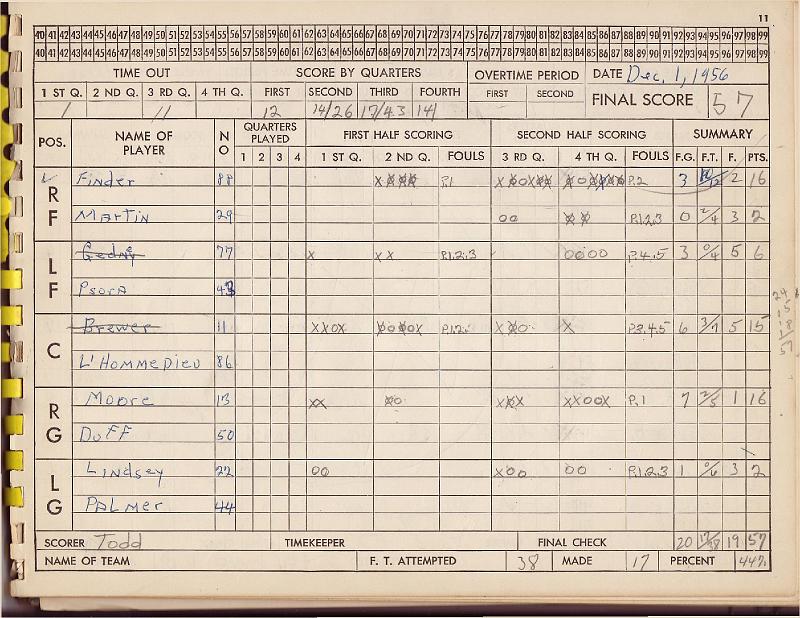 11
40 41 42 43 44 45 46 47 48 49 50 51 52 53 54 55 56 57 58 59 60 61 62 63 64 65 66 67 68 69 70 71 72 73 74 75 76 77 78 79 80 81 82 83 84 85 86 87 88 89 90 91 92 93 94 95 96 97 98 99
40 41 42 43 44 45 46 47 48 49 50 51 52 53 54 55 56 57 58 59 60 61 62 63 64 65 66 67 68 69 70 71 72 73 74 75 76 77 78 79 80 81 82 83 84 85 86 87 88 89 90 91 92 93 94 95 96 97 98 99
TIME OUT SCORE BY QUARTERS OVERTIME PERIOD DATE Dec. 1, 1956
1 ST Q. 2 ND Q. 3 RD Q. 4 TH Q. FIRST SECOND THIRD FOURTH FIRST SECOND FINAL SCORE 57
/ // 12 14/26 17/43 14/
POS. NAME OF PLAYER NO QUARTERS PLAYED FIRST HALF SCORING SECOND HALF SCORING SUMMARY
1 2 3 4 1 ST Q. 2 ND Q. FOULS 3 RD Q. 4 TH Q. FOULS F.G. F.T. F. PTS.
RF Finder 88 P.1 P.2 3 10/12 2 16
Martin 29 oo P.1.2.3 0 2/4 3 2
LF Gedny 77 x xx P.1.2.3 oooo P.4.5 3 0/4 5 6
Psora 43
C Brewer 11 xxox P.1.2. x P.3.4.5 6 3/7 5 15
L'Hommedieu 86
RG Moore 13 xx P.1 7 2/5 1 16
Duff 50
LG Lindsey 22 oo xoo oo P.1.2.3 1 0/6 3 2
Palmer 44
SCORER Todd TIMEKEEPER FINAL CHECK 20 17/38 19 57
NAME OF TEAM F. T. ATTEMPTED 38 MADE 17 PERCENT 44%